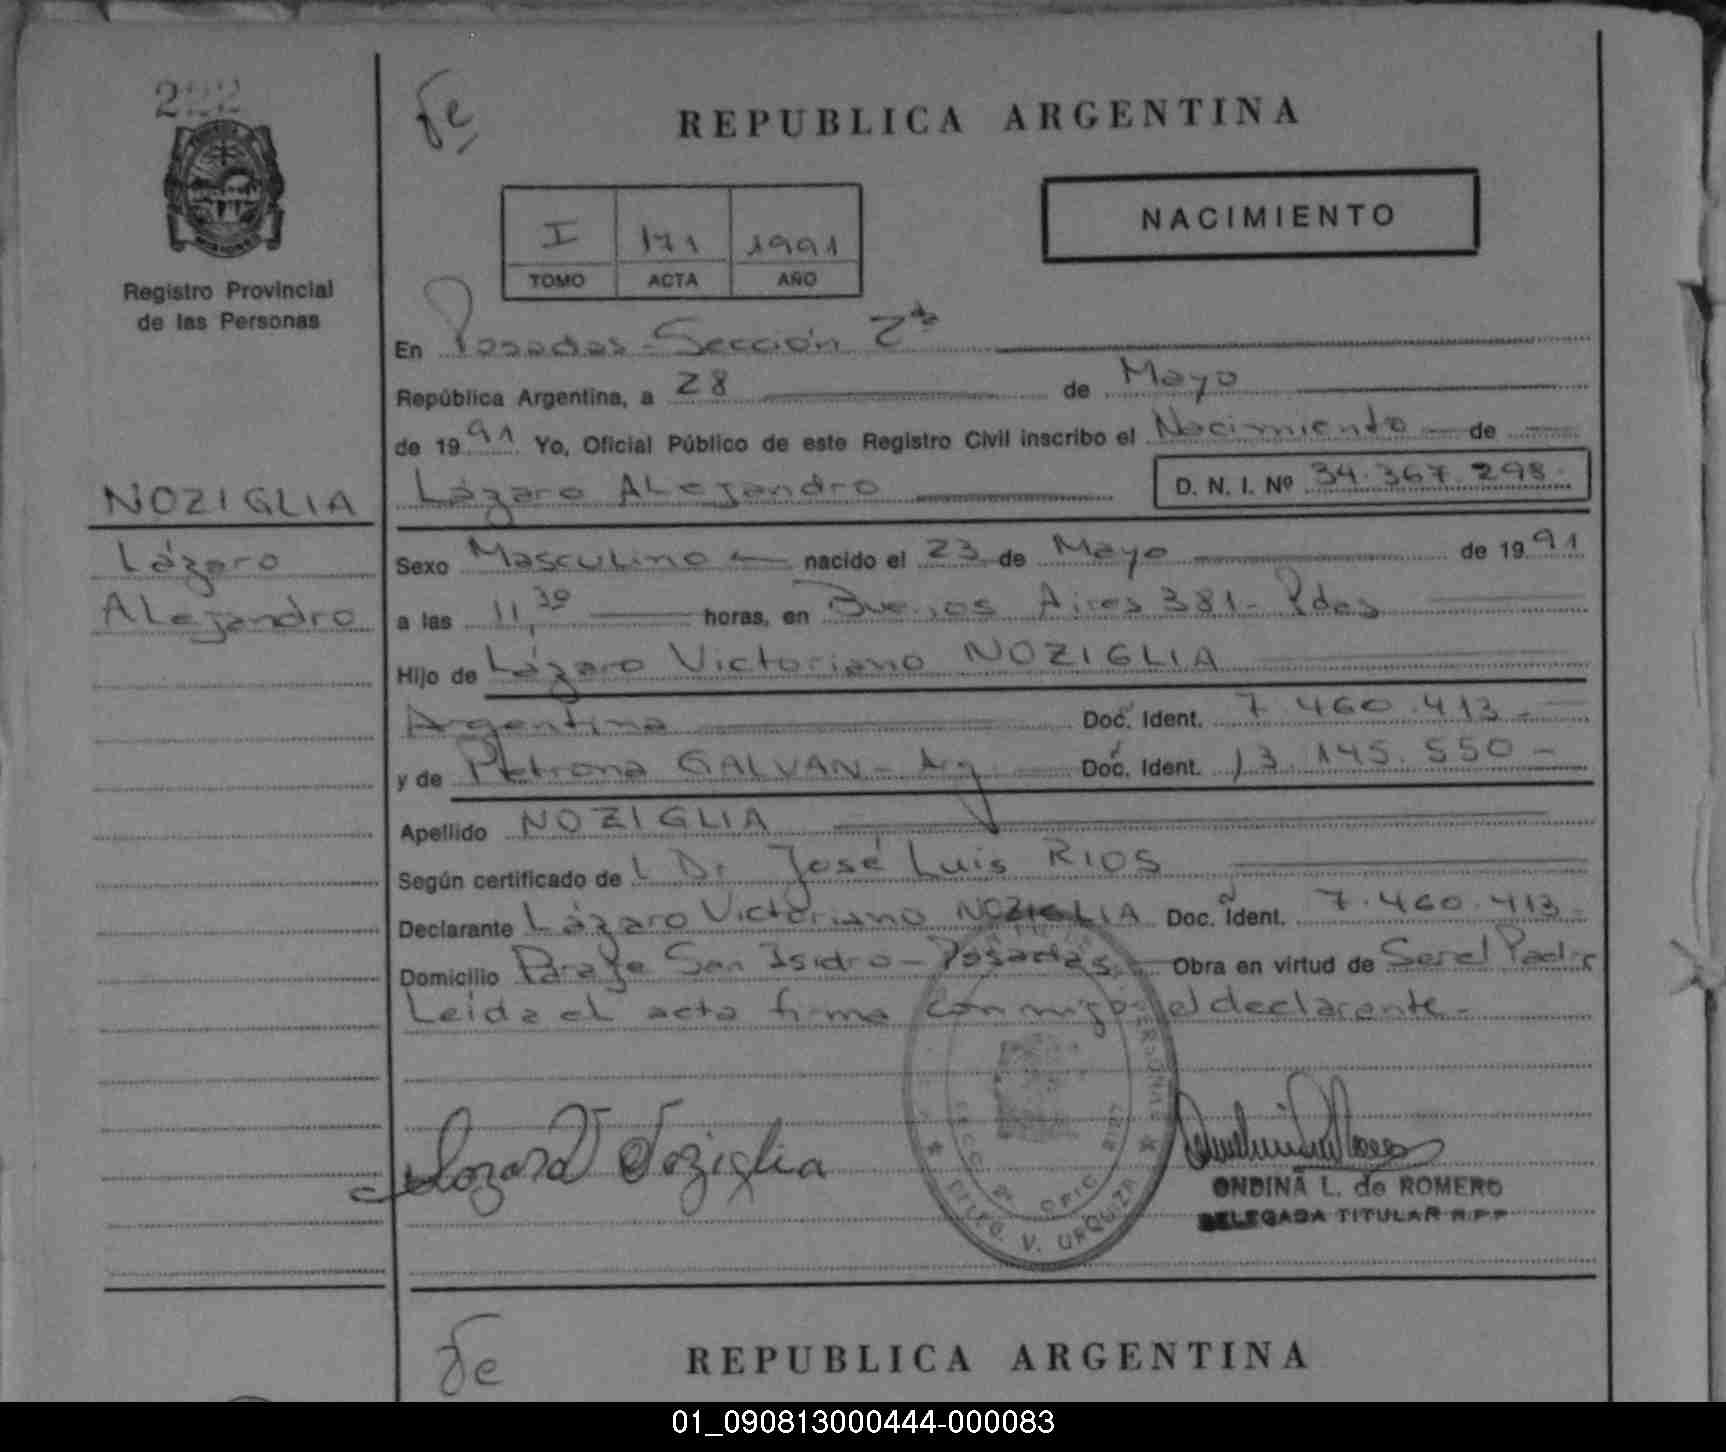 222
Fe
REPUBLICA ARGENTINA
NACIMIENTO
I 171 1991
TOMO ACTA AÑO
Registro Provincial
de las Personas
En Posadas - Sección 2da
República Argentina, a 28 de Mayo
de 1991 Yo, Oficial Público de este Registro Civil inscribo el Nacimiento de
Lázaro Alejandro D. N. I. Nº 34.367.298.
NOZIGLIA
Lázaro
Alejandro
Sexo Masculino nacido el 23 de Mayo de 1991
a las 11,30 horas, en Buenos Aires 381 - Pdas
Hijo de Lázaro Victoriano NOZIGLIA
Argentina Doc. Ident. 7.460.413 -
y de Petrona GALVAN - Arg. Doc. Ident. 13.145.550 -
Apellido NOZIGLIA
Según certificado de L Dr José Luis RIOS
Declarante Lázaro Victoriano NOZIGLIA Doc. Ident. 7.460.413 -
Domicilio Paraje San Isidro - Posadas - Obra en virtud de Ser el Padre
Leida el acta firma conmigo el declarante. -
Lazaro V Noziglia
SECC. 2ª OFIC.
DLLEG. V. URQUIZA
ONDINA L. de ROMERO
DELEGADA TITULAR R.P.P.
Fe
REPUBLICA ARGENTINA
01_090813000444-000083